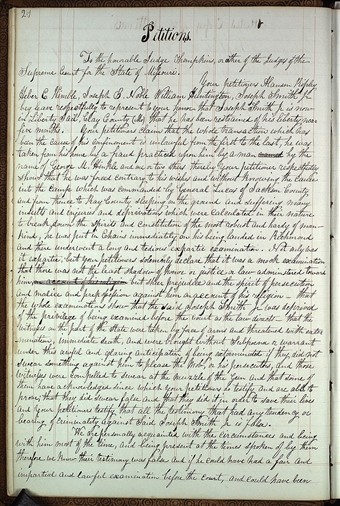 24
Petitions.
To the honorable Judge Thompkins, or either of the Judges of the
Supreme Court for the State of Missouri.
Your petitioners Alanson Ripley,
Heber C. Kimble, Joseph B. Noble, William Huntington, Joseph Smith
beg leave respectfully to represent to your honor that Joseph Smith Jr is now
in Liberty Jail, Clay County that he has been restrained of his liberty near
five months. Your petitioners claim that the whole transaction which has
been the cause of his confinement is unlawful from the first to the last, he was
taken from his home by a fraud practised upon him by a man by the
name of George M. Hinkle and one or two others thereby Your petitioners respectfully
show that he was forced contrary to his wishes and without knowing the cause
into the camp which was commanded by General Lucas of Jackson County
and from thence to Ray County sleeping on the ground and suffering many
insults and injuries and deprivations which were calculated in their nature
to break down the spirits and constitution of the most robust and hardy of man-
kind, he was put in chains immediately on his being landed in Richmond
and there underwent a long and tedious expartie examination. Not only was
it expartie but your petitioners solemnly declare that it was a mock examination
that there was not the least shadow of honor or justice or law administered toward
him but sheer prejudice and the spirit of persecution
and malice and prepossession against him on account of his religion that
the whole examination show that the said Joseph Smith Jr. was deprived
of the privilege of being examined before the court as the law directs that the
witnesses on the part of the state were taken by force of arms and threatened with exter
mination, immediate death, and were brought without Subpoena or warrant
under this awful and glaring anticipation of being exterminated if they did not
swear something against him to please the Mob or his persecutors, and those
witnesses were compelled to swear at the muzzle of the Gun and that some of
them have acknowledged since which your petitioners do testify, and are able to
prove, that they did swear false, and that they did it in order to save their lives
and your petitioners testify that all the testimony that had any tendency or
bearing of criminality against Said Joseph Smith Jr is false.
We are personally acquainted with the circumstances and being
with him most of the time, and being present at the times spoken of by them
therefore we know their testimony was false and if he could have had a fair and
impartial and lawful examination before the court, and could have been